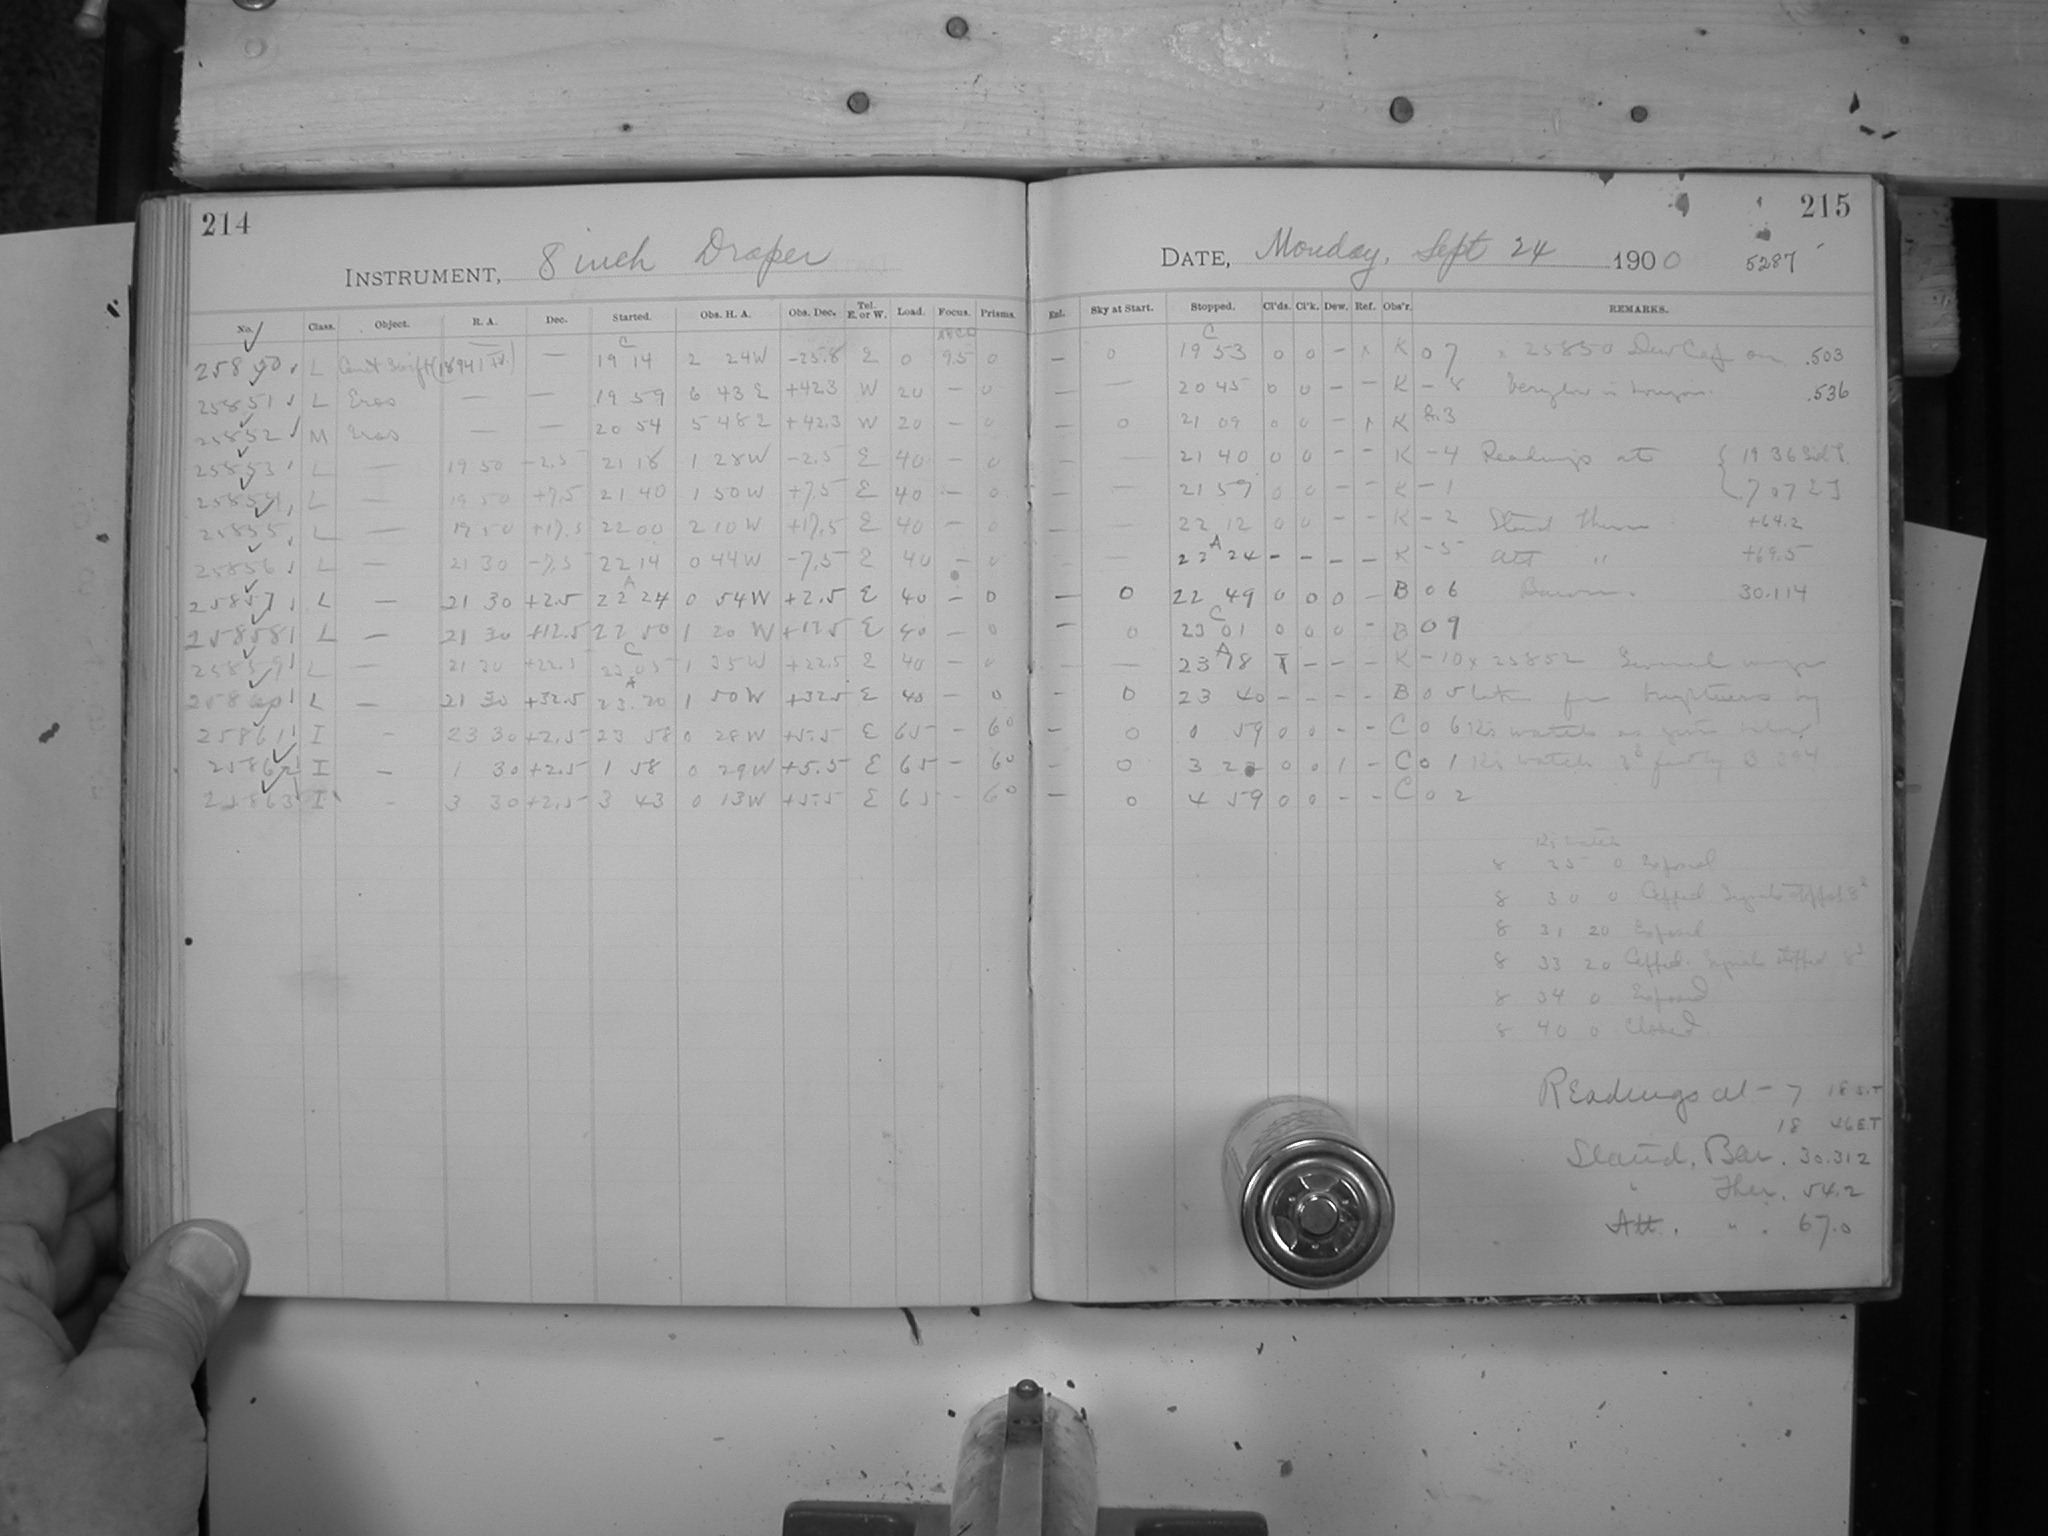 214
INSTRUMENT, 8 inch Draper
No. Class. Object. R. A. Dec. Started. Obs. H. A. Obs. Dec. Tel. E. or W. Load. Focus. Prisms.
25850 L (1894 IV.) — 19 14 2 24W −25.8 E 0 95 0
25851 L Eros — — 19 59 6 43 E +42.3 W 20 — 0
25852 M Eros — — 20 54 5 48 E +42.3 W 20 — 0
25853 L — 19 50 −2.5 21 18 1 28W −2.5 E 40 — 0
25854 L — 19 50 +7.5 21 40 1 50W +7.5 E 40 — 0
25855 L — 19 50 +17.5 22 00 2 10W +17.5 E 40 — 0
25856 L — 21 30 −7.5 22 14 0 44W −7.5 E 40 — 0
25857 L — 21 30 +2.5 22 24 0 54W +2.5 E 40 — 0
25858 L — 21 30 +12.5 22 50 1 20 W +12.5 E 40 — 0
25859 L — 21 30 +22.5 23 05 1 35W +22.5 E 40 — 0
25860 L — 21 30 +32.5 23 20 1 50W +32.5 E 40 — 0
25861 I - 23 30 +2.5 23 58 0 28W +5.5 E 65 — 60
25862 I - 1 30 +2.5 1 58 0 29W +5.5 E 65 — 60
25863 I - 3 30 +2.5 3 43 0 13W +5.5 E 65 — 60
215
DATE, Monday, Sept 24 1900 5287
Enl. Sky at Start. Stopped. Cl'ds. Cl'k. Dew. Ref. Obs'r. REMARKS.
— 0 19 53 0 0 - x K 07 x 25850 Dew Cap on .503
— — 20 45 0 0 - - K −8 Very low in horizon. .536
— 0 21 09 0 0 - x K 8.3
— 21 40 0 0 - - K −4 Readings at 19 36 Sid T.
— 21 59 0 0 - - K −1 7 07 E T
— 22 12 0 0 - - K −2 Stand Therm +64.2
— 22 24 - - - - K −5 Att " +69.5
— 0 22 49 0 0 0 - B 06 Barom. 30.114
— 0 23 01 0 0 0 - B 09
— 23 18 - - - K −10 x 25852 Several images
— 0 23 40 - - - - B 05 for brightness by
— 0 0 59 0 0 - - C 06 K's watch as given below
— 0 3 23 0 0 1 - C 01 K's watch
— 0 4 59 0 0 - - C 02
K's watch
8 25 0 Exposed
8 30 0 Capped Signals stopped
8 31 20 Exposed
8 33 20 Capped. Signals stopped
8 34 0 Exposed
8 40 0 Closed
Readings at — 7 18 S.T
18 46 E.T
Stand. Bar. 30.312
" Ther. 54.2
Att. " . 67.0